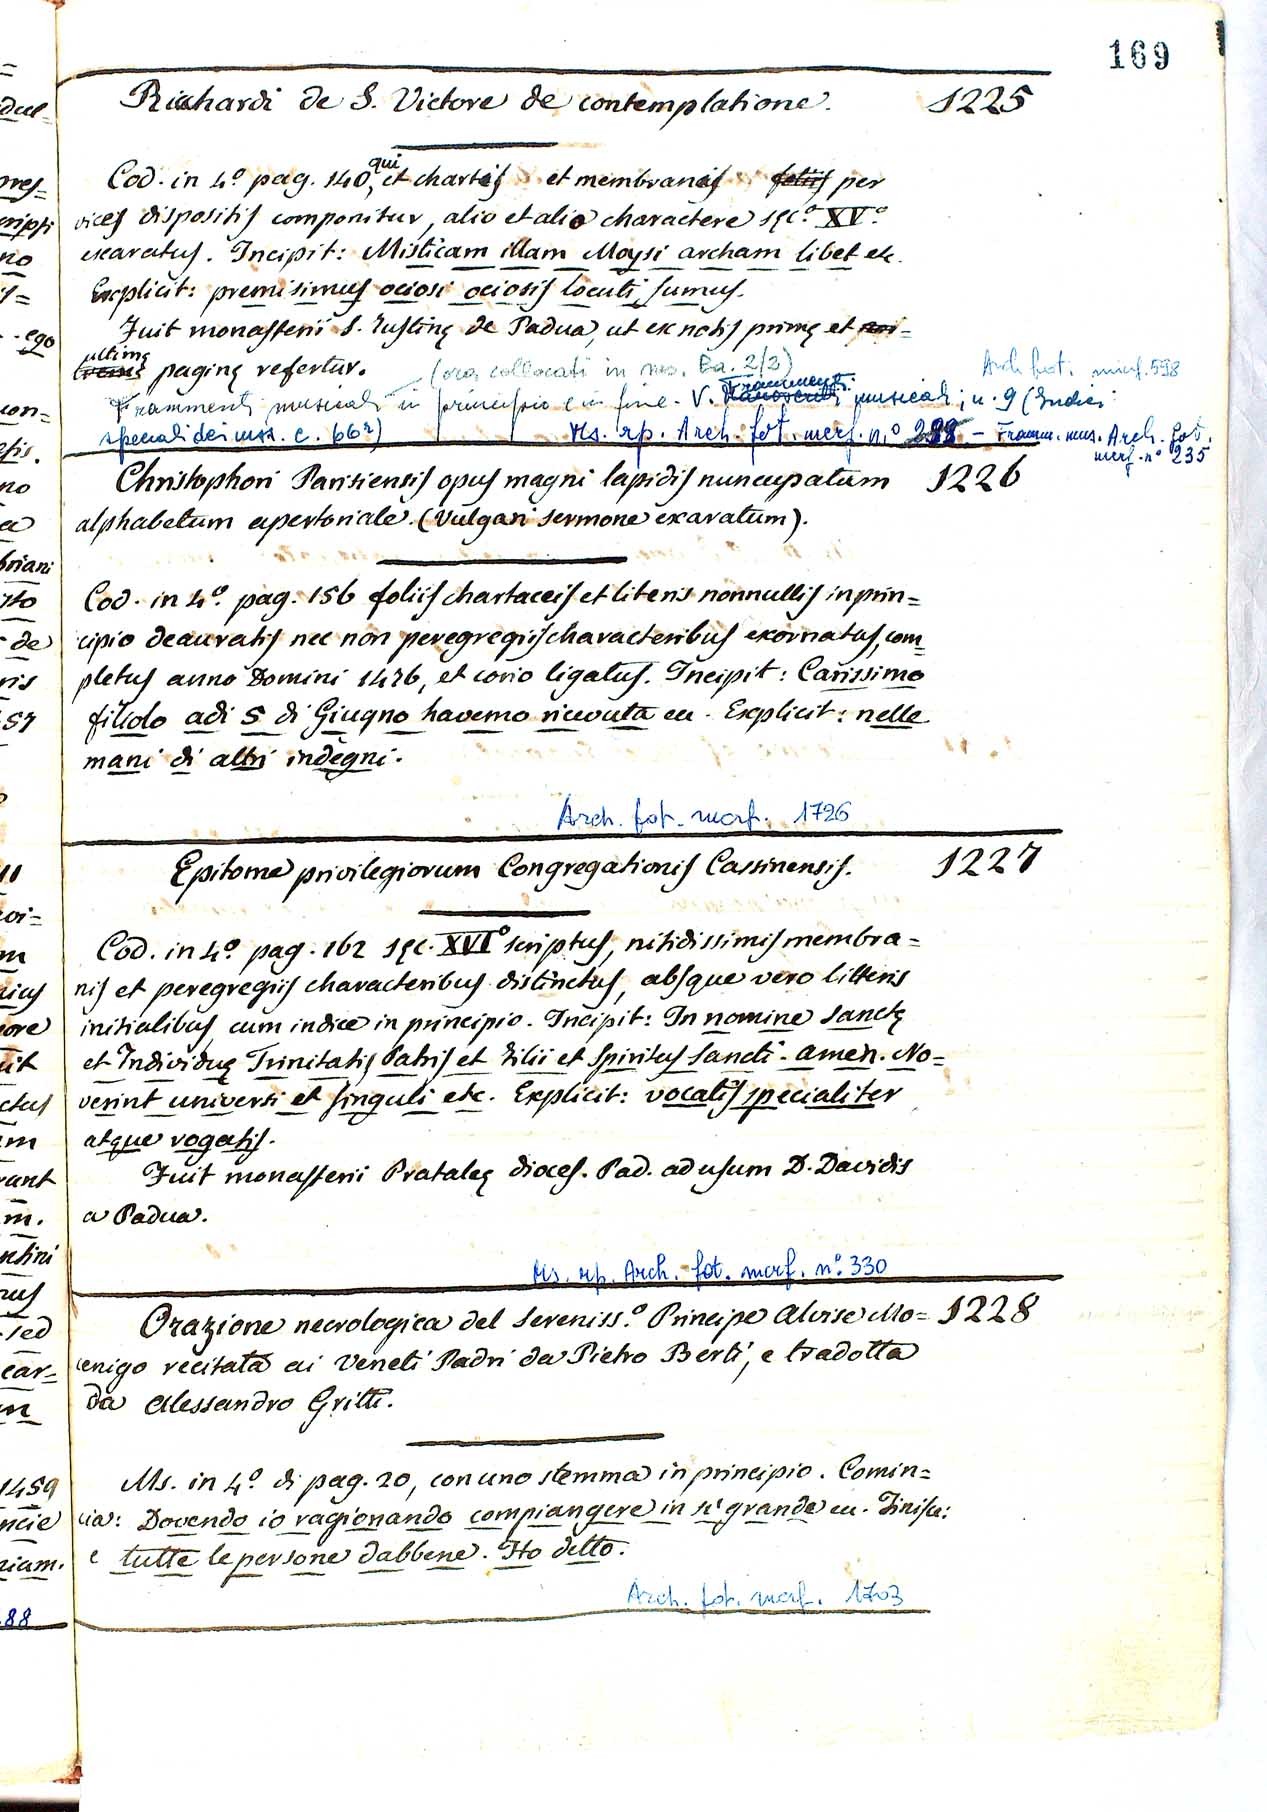 169
Richardi de S. Victore de contemplatione. 1225
Cod. in 4º pag. 140, qui et chartis et membraneis foliis per
vices dispositis componitur, alio et alio charactere sęc.º XVº
exaratus. Incipit: Misticam illam Moysi archam libet etc.
Explicit: premisimus ociosi ociosis locuti sumus.
Fuit monasterii S. Iustinę de Padua, ut ex notis primę et
ultimę paginę refertur. (ora collocati in ms. Ba. 2/2) Arch. fot. microf. 598
Frammenti musicali in principio e in fine. V. Frammenti musicali, n. 9 (Indici
speciali dei mss. c. 66r) Ms. rip. Arch. fot. microf. n.º 298 - Framm. mus. Arch. fot.
microf. nº 235
Christophori Parisiensis opus magni lapidis nuncupatum 1226
alphabetum apertoriale. (Vulgari sermone exaratum).
Cod. in 4º. pag. 156 foliis chartaceis et literis nonnullis in prin=
cipio deauratis nec non peregregiis characteribus exornatus, com=
pletus anno Domini 1476, et corio ligatus. Incipit: Carissimo
filiolo adi 5 di Giugno havemo ricevuta ec. Explicit: nelle
mani di altri indegni.
Arch. fot. microf. 1726
Epitome privilegiorum Congregationis Cassinensis. 1227
Cod. in 4º pag. 162 sęc. XVIº scriptus, nitidissimis membra=
nis et peregregiis characteribus distinctus, absque vero litteris
initialibus, cum indice in principio. Incipit: In nomine sanctę
et Individuę Trinitatis Patris et Filii et Spiritus Sancti. amen. No=
verint universi et singuli etc. Explicit: vocatis specialiter
atque rogatis.
Fuit monasterii Pratalęę dioces. Pad. ad usum D. Davidis
a Padua.
Ms. rip. Arch. fot. microf. nº. 330
Orazione necrologica del Sereniss.º Principe Alvise Mo= 1228
cenigo recitata ai Veneti Padri da Pietro Berti, e tradotta
da Alessandro Gritti.
Ms. in 4º di pag. 20, con uno stemma in principio. Comin=
cia: Dovendo io ragionando compiangere in sì grande ec. Finisce:
e tutte le persone dabbene. Ho detto.
Arch. fot. microf. 1703